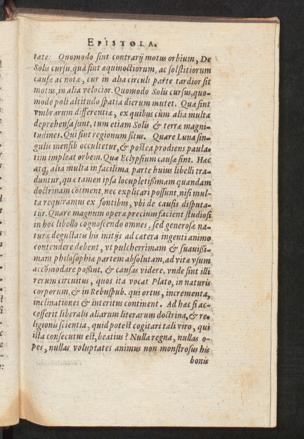 EPISTOLA.
tate. Quomodo sint contrarij motus orbium, De
Solis cursu, quæ sint æquinoctiorum, ac solstitiorum
causæ ac notæ, cur in alia circuli parte tardior sit
motus, in alia velocior. Quomodo Solis cursus, quo-
modo poli altitudo spatia dierum mutet. Quæ sint
vmbrarum differentiæ, ex quibus cùm alia multa
deprehensa sunt, tum etiam Solis & terræ magni-
tudines. Qui sint regionum situs. Quare Luna sin-
gulis mensib. occultetur, & postea prodiens paula-
tim impleat orbem. Quæ Eclypsium causæ sint. Hæc
atq; alia multa in facilima parte huius libelli tra-
duntur, quæ tamen ipsa locupletissimam quandam
doctrinam cōtinent nec explicari possunt, nisi mul-
ta requiramus ex fontibus, vbi de causis disputa-
tur. Quare magnum operæ precium facient studiosi
in hoc libello cognoscendo omnes, sed generosæ na-
turæ degustatis his initijs ad cætera ingenti animo
contendere debent, vt pulcherrimam & suauissi-
mam philosophiæ partem absolutam, ad vitæ vsum
accōmodare possint, & causas videre, vnde sint illi
rerum circuitus, quos ita vocat Plato, in naturis
corporum, & in Rebuspub. qui ortus, incrementa,
inclinationes & interitus continent. Ad hæc si ac-
cesserit liberalis aliarum literarum doctrina, & re-
ligionis scientia, quid potest cogitari tali viro, qui
ista consecutus est, beatius? Nulla regna, nullas o-
pes, nullas voluptates animus non monstrosus his
bonis